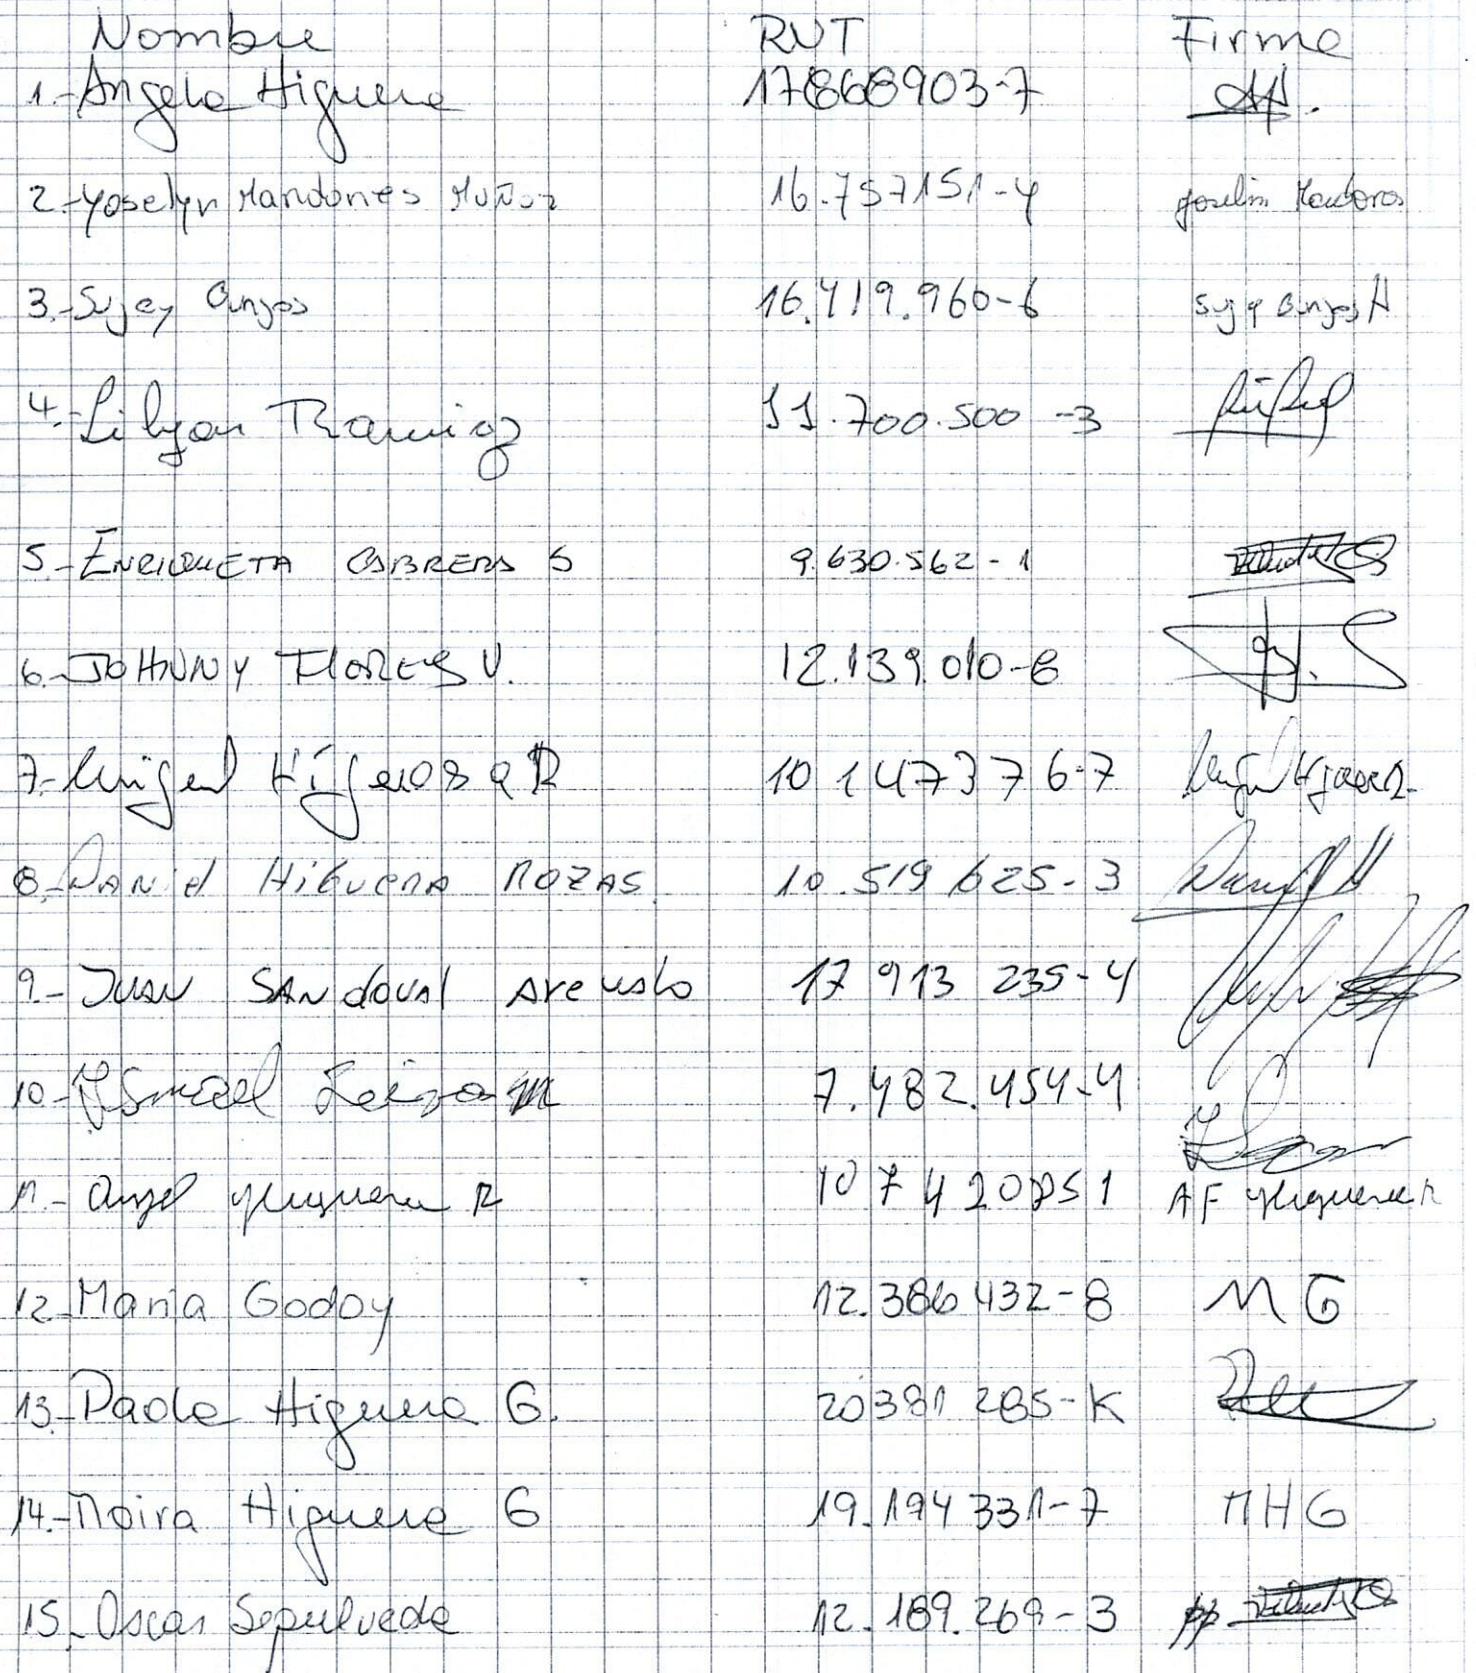 Nombre RUT Firma
1.- Angela Higuera 17868903-7
2.- Yoselyn Mardones Muñoz 16.757151-4 Joselin Mardones
3.- Sujey Burgos 16.419.960-6 Sujey Burgos A
4.- Lilyan Ramirez 11.700.500-3
5.- ENRIQUETA CABRERA S 9.630.562-1
6.- JOHNNY FLORES V. 12.139.010-6
7.- Miguel Higueras R 10 147376-7
8.- DANiel HiGUERA ROZAS 10.519 625-3 Daniel H
9.- JUAN SANdoval Arevalo 17 913 235-4
10.- Ismael Leiva M 7.482.454-4
11.- Angel Higuera R 10 7420851 AF Higuera R
12.- Maria Godoy 12.386 432-8 M G
13.- Paola Higuera G. 20381 285-K
14.- Moira Higuera G 19.194 331-7 MHG
15.- Oscar Sepulveda 12.189.269-3 pp.